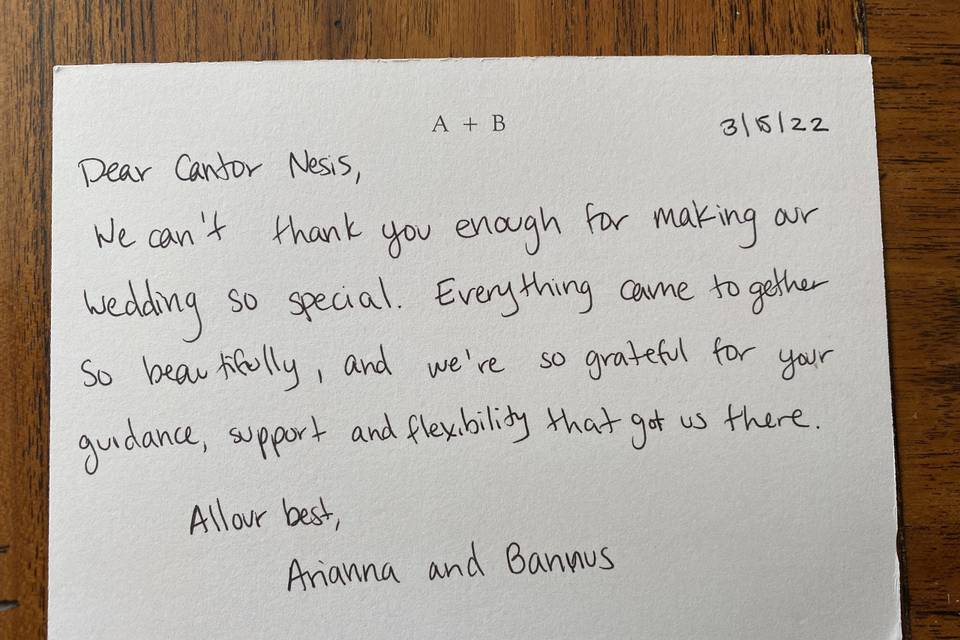 A + B
3/15/22
Dear Cantor Nesis,
We can't thank you enough for making our
wedding so special. Everything came together
so beautifully, and we're so grateful for your
guidance, support and flexibility that got us there.
All our best,
Arianna and Bannus